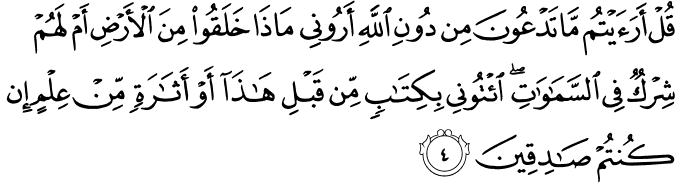 قُلْ أَرَءَيْتُم مَّا تَدْعُونَ مِن دُونِ ٱللَّهِ أَرُونِي مَاذَا خَلَقُوا۟ مِنَ ٱلْأَرْضِ أَمْ لَهُمْ
شِرْكٌ فِي ٱلسَّمَٰوَٰتِ ۖ ٱئْتُونِي بِكِتَٰبٍ مِّن قَبْلِ هَٰذَآ أَوْ أَثَٰرَةٍ مِّنْ عِلْمٍ إِن
كُنتُمْ صَٰدِقِينَ ٤